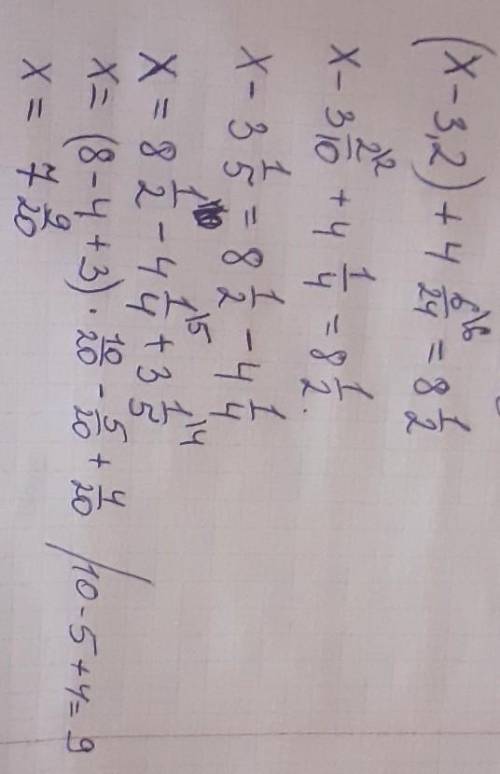 (x - 3,2) + 4 6/24 \6 = 8 1/2
x - 3 2/10 \2 + 4 1/4 = 8 1/2.
x - 3 1/5 = 8 1/2 - 4 1/4
x = 8 1/2 \10 - 4 1/4 \5 + 3 1/5 \4
x = (8 - 4 + 3) · 10/20 - 5/20 + 4/20 / 10 - 5 + 4 = 9
x = 7 9/20